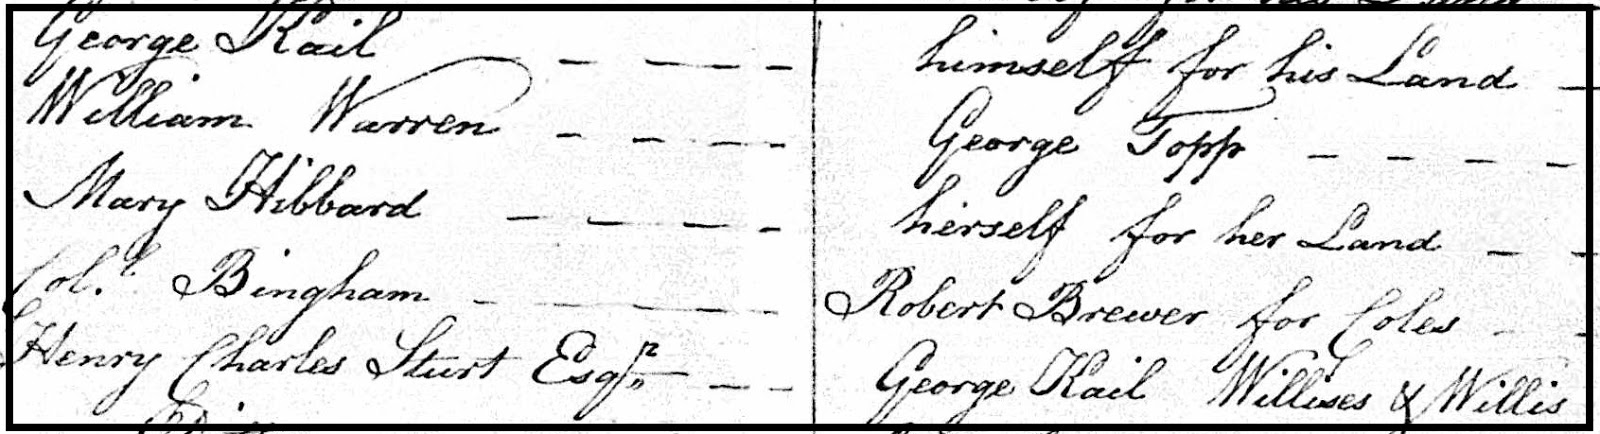 George Kail - - - - himself for his Land -
William Warren - - - - George Topp - - - -
Mary Hibbard - - - - herself for her Land - -
Col.l Bingham - - - - Robert Brewer for Coles - -
Henry Charles Sturt Esqr. - - George Kail Willises & Willis